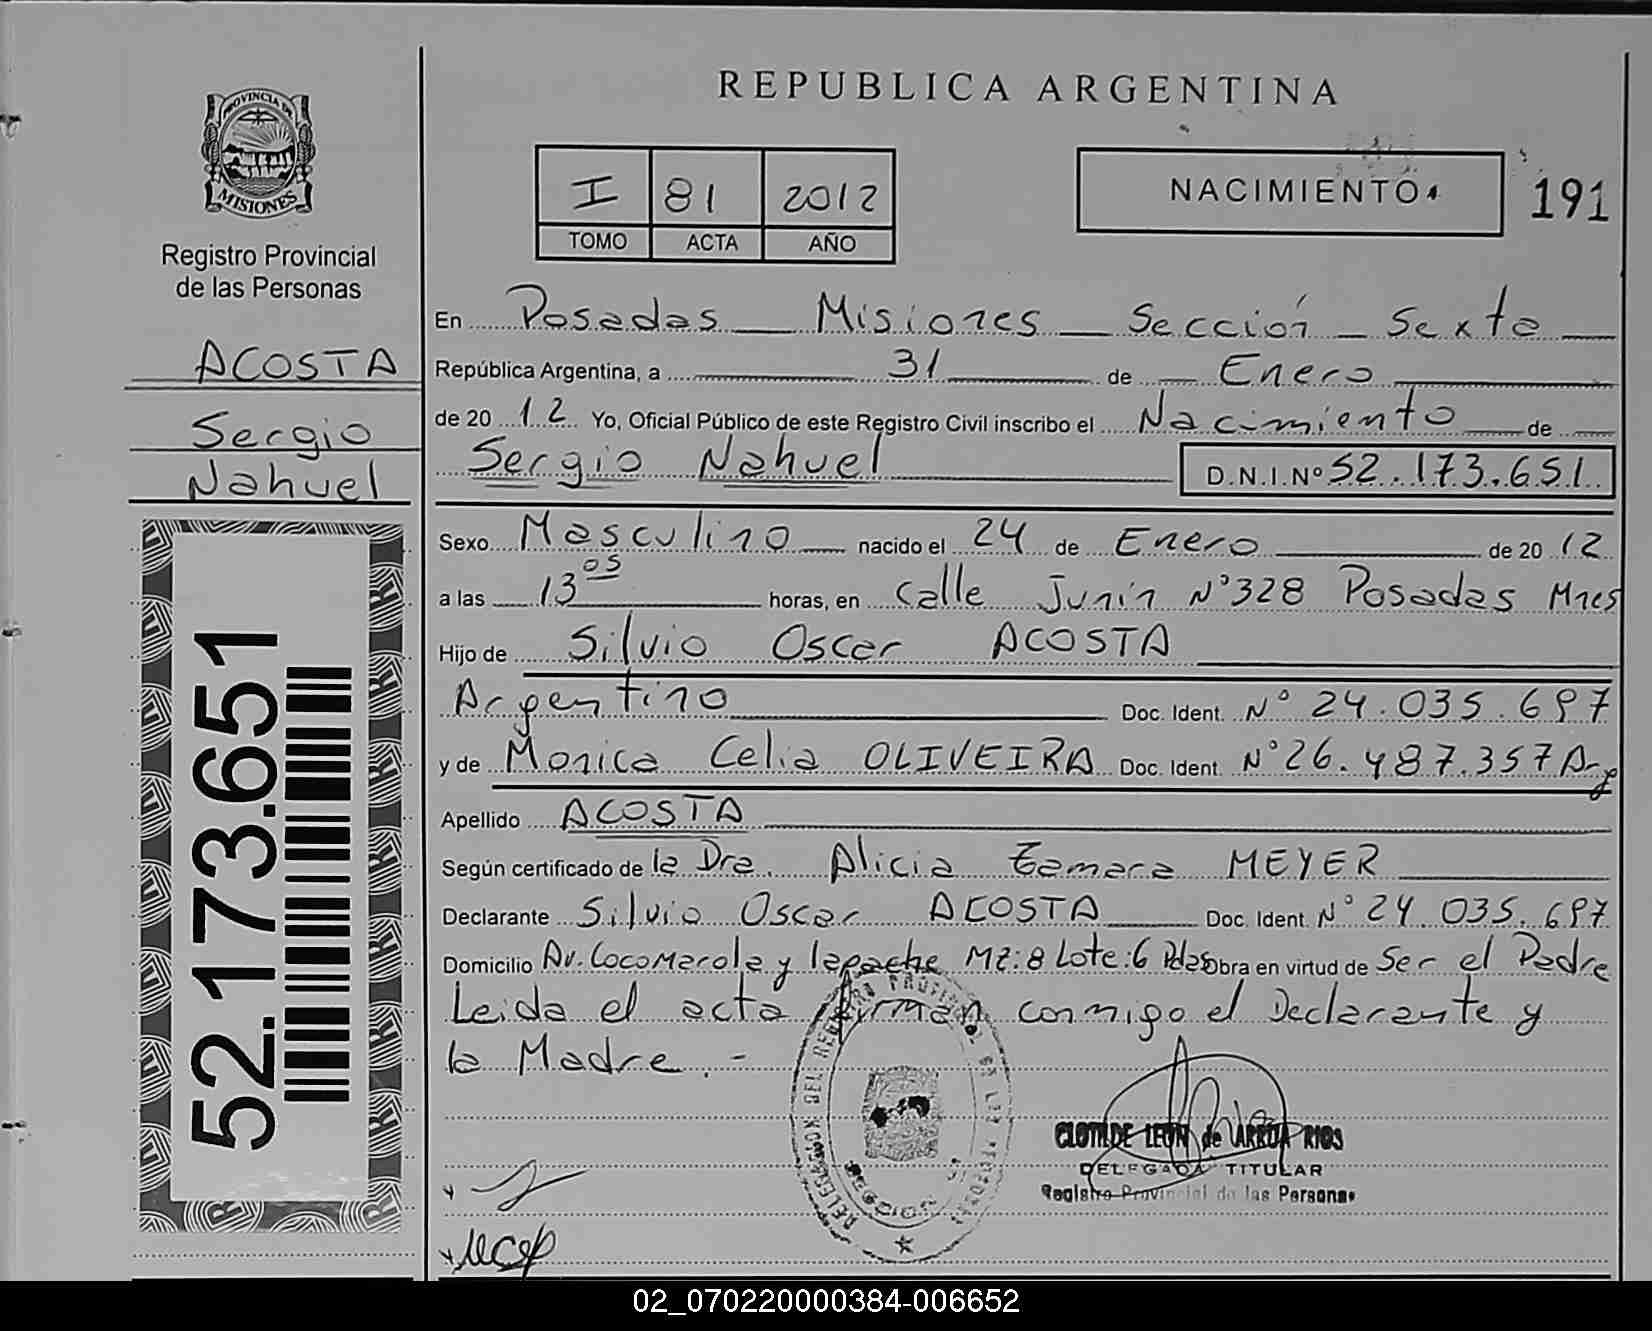 REPUBLICA ARGENTINA
PROVINCIA DE
MISIONES
Registro Provincial
de las Personas
I 81 2012
TOMO ACTA AÑO
NACIMIENTO
191
ACOSTA
Sergio
Nahuel
52.173.651
En Posadas Misiones Sección Sexta
República Argentina, a 31 de Enero
de 2012 Yo, Oficial Público de este Registro Civil inscribo el Nacimiento de
Sergio Nahuel D.N.I.Nº 52.173.651
Sexo Masculino nacido el 24 de Enero de 2012
a las 13 05 horas, en Calle Junín Nº 328 Posadas Mnes
Hijo de Silvio Oscar ACOSTA
Argentino Doc. Ident. Nº 24.035.697
y de Monica Celia OLIVEIRA Doc. Ident. Nº 26.487.357 Arg
Apellido ACOSTA
Según certificado de la Dra. Alicia Tamara MEYER
Declarante Silvio Oscar ACOSTA Doc. Ident. Nº 24 035.697
Domicilio Av. Cocomarola y lapache Mz:8 Lote:6 Pdas Obra en virtud de Ser el Padre
Leida el acta firman conmigo el Declarante y
la Madre.-
CLOTILDE LEON de ARRUA RIOS
DELEGADA TITULAR
Registro Provincial de las Personas
02_070220000384-006652